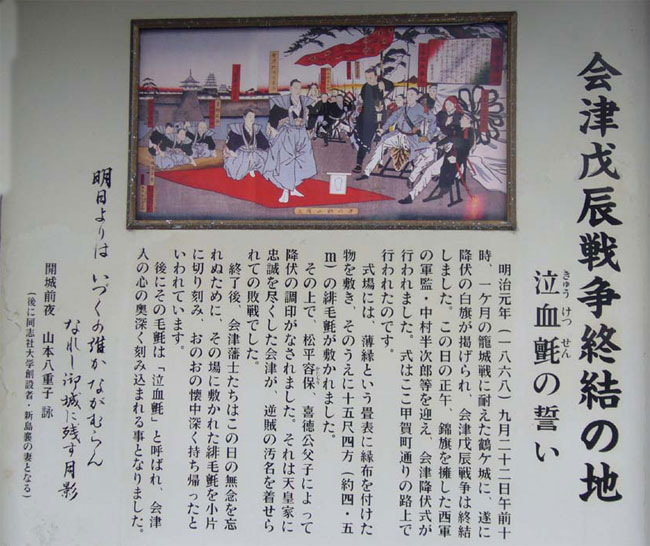 会津戊辰戦争終結の地
きゅう けつ せん
泣血氈の誓い
明治元年(一八六八)九月二十二日午前十
時、一ケ月の籠城戦に耐えた鶴ケ城に、遂に
降伏の白旗が掲げられ、会津戊辰戦争は終結
しました。この日の正午、錦旗を擁した西軍
の軍監 中村半次郎等を迎え、会津降伏式が
行われました。式はここ甲賀町通りの路上で
行われたのです。
式場には、薄縁という畳表に縁布を付けた
物を敷き、そのうえに十五尺四方(約四・五
m)の緋毛氈が敷かれました。
その上で、松平容保、喜徳公父子によって
降伏の調印がなされました。それは天皇家に
忠誠を尽くした会津が、逆賊の汚名を着せら
れての敗戦でした。
終了後、会津藩士たちはこの日の無念を忘
れぬために、その場に敷かれた緋毛氈を小片
に切り刻み、おのおの懐中深く持ち帰ったと
いわれています。
後にその毛氈は「泣血氈」と呼ばれ、会津
人の心の奥深く刻み込まれる事となりました。
明日よりは いづくの誰か ながむらん
なれし御城に残す月影
開城前夜 山本八重子 詠
(後に同志社大学創設者・新島襄の妻となる)